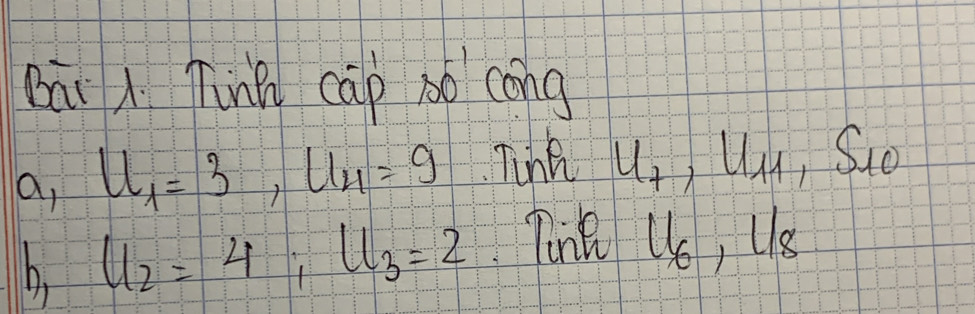 Bài 1. Tính cấp số cộng
a, U₁ = 3, U₄ = 9. Tính U₇, U₁₁, S₁₀
b, U₂ = 4; U₃ = 2. Tính U₆, U₈